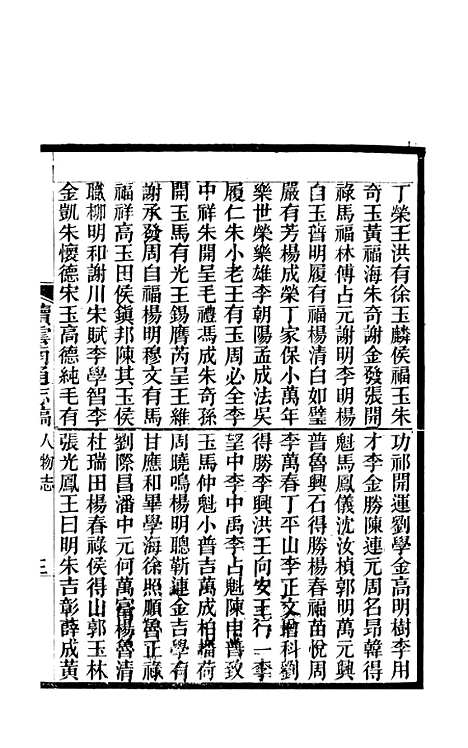 丁榮王洪有徐玉麟侯福玉朱功祁開運劉學金高明樹李用
奇玉黃福海朱奇謝金發張開才李金勝陳連元周名昂韓得
祿馬福林傅占元謝明李明楊魁馬鳳儀沈汝楨郭明萬元興
白玉著明履有福楊清白如璧普魯興石得勝楊春福苗悅周
嚴有芳楊成榮丁家保小萬年李萬春丁平山李正文增科劉
樂世榮樂雄李朝陽孟成法吳得勝李興洪王向安王行一李
履仁朱小老王有玉周必全李望中李中禹李占魁陳申普致
中祥朱開呈毛禮馮成朱奇孫玉馬仲魁小普吉萬成柏瑞荷
開玉馬有光王錫膺芮呈王維周曉鳴楊明聰靳連金吉學有
謝承發周自福楊明穆文有馬甘應和畢學海徐照順魯正祿
福祥高玉田侯鎮邦陳其玉侯劉際昌潘中元何萬富楊魯清
職柳明和謝川朱賦李學智李杜瑞田楊春祿侯得山郭玉林
金凱朱懷德宋玉高德純毛有張光鳳王曰明朱吉彰薛成黃
續雲南通志稿 人物志 三